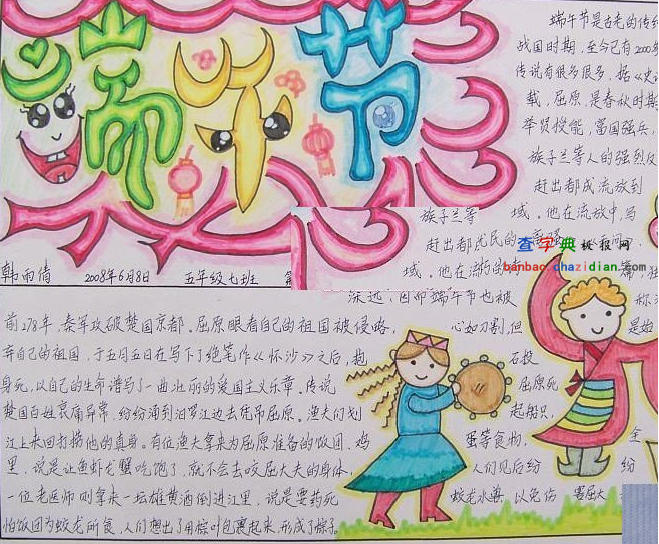 端午节
端午节是古老的传统
战国时期，至今已有2000年
传说有很多很多，据《史记
载，屈原，是春秋时期
举贤授能，富国强兵，
族子兰等人的强烈反
赶出都城流放到
族子兰等 域。他在流放中，写
赶出都 流民的
域。他在流放
查字典板报网
banbao.chazidian.com
韩雨倩 2008年6月8日 五年级七班
深远，因即端午节也被 称
前278年，秦军攻破楚国京都。屈原眼看自己的祖国被侵略， 心如刀割，但 是始
弃自己的祖国，于五月五日在写下了绝笔作《怀沙》之后，抱 石投
身死，以自己的生命谱写了一曲壮丽的爱国主义乐章。传说 屈原死
楚国百姓哀痛异常，纷纷涌到汨罗江边去凭吊屈原。渔夫们划 起船只，
江上来回打捞他的真身。有位渔夫拿来为屈原准备的饭团、鸡 蛋等食物， 全
里，说是让鱼虾龙蟹吃饱了，就不会去咬屈大夫的身体， 人们见后纷 纷
一位老医师则拿来一坛雄黄酒倒进江里，说是要药死 蛟龙水兽，以免伤 害屈大
怕饭团为蛟龙所食，人们想出了用棕叶包裹起来，形成了棕子